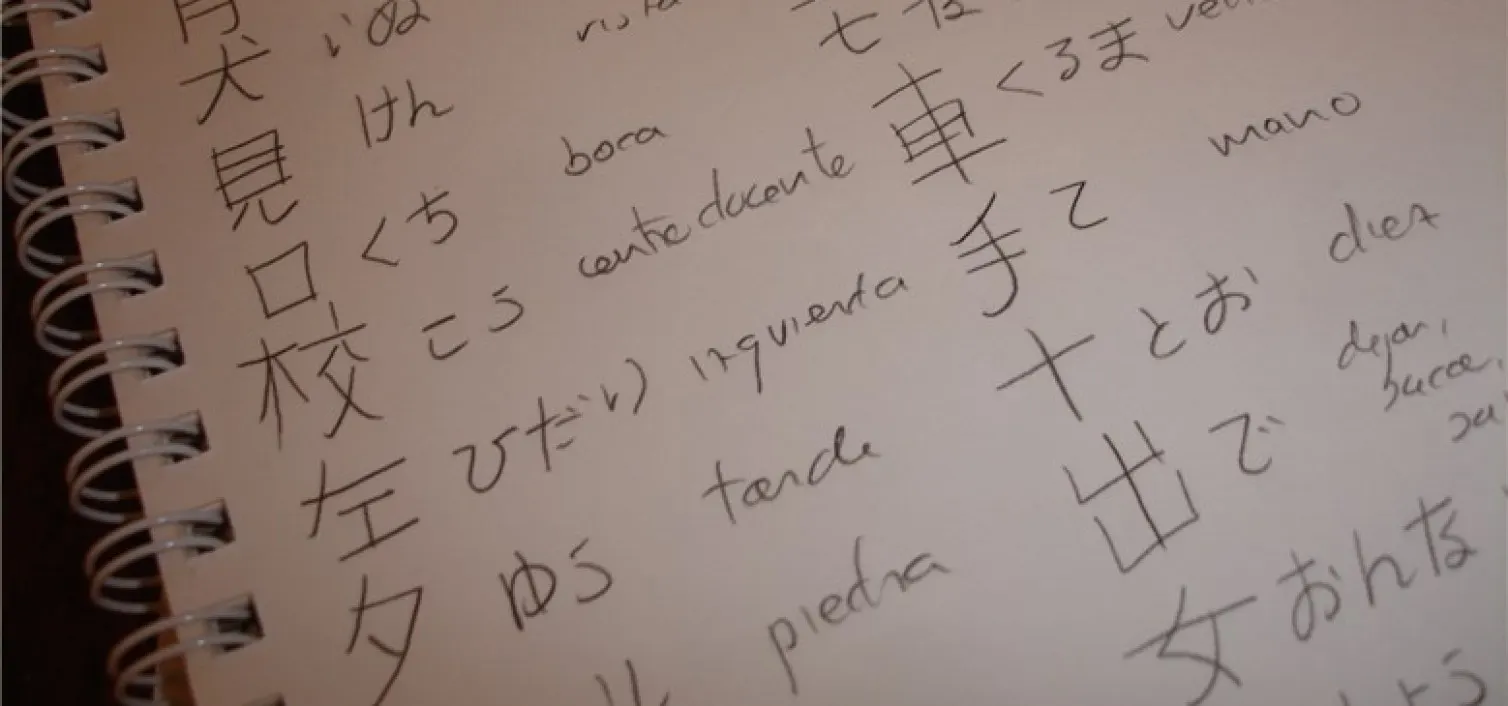 犬 いぬ
見 けん vista
口 くち boca
校 こう centro docente
左 ひだり izquierda
夕 ゆう tarde
piedra
七
車 くるま
手 て mano
十 とお diez
出 で dejar,
sacar,
女 おんな